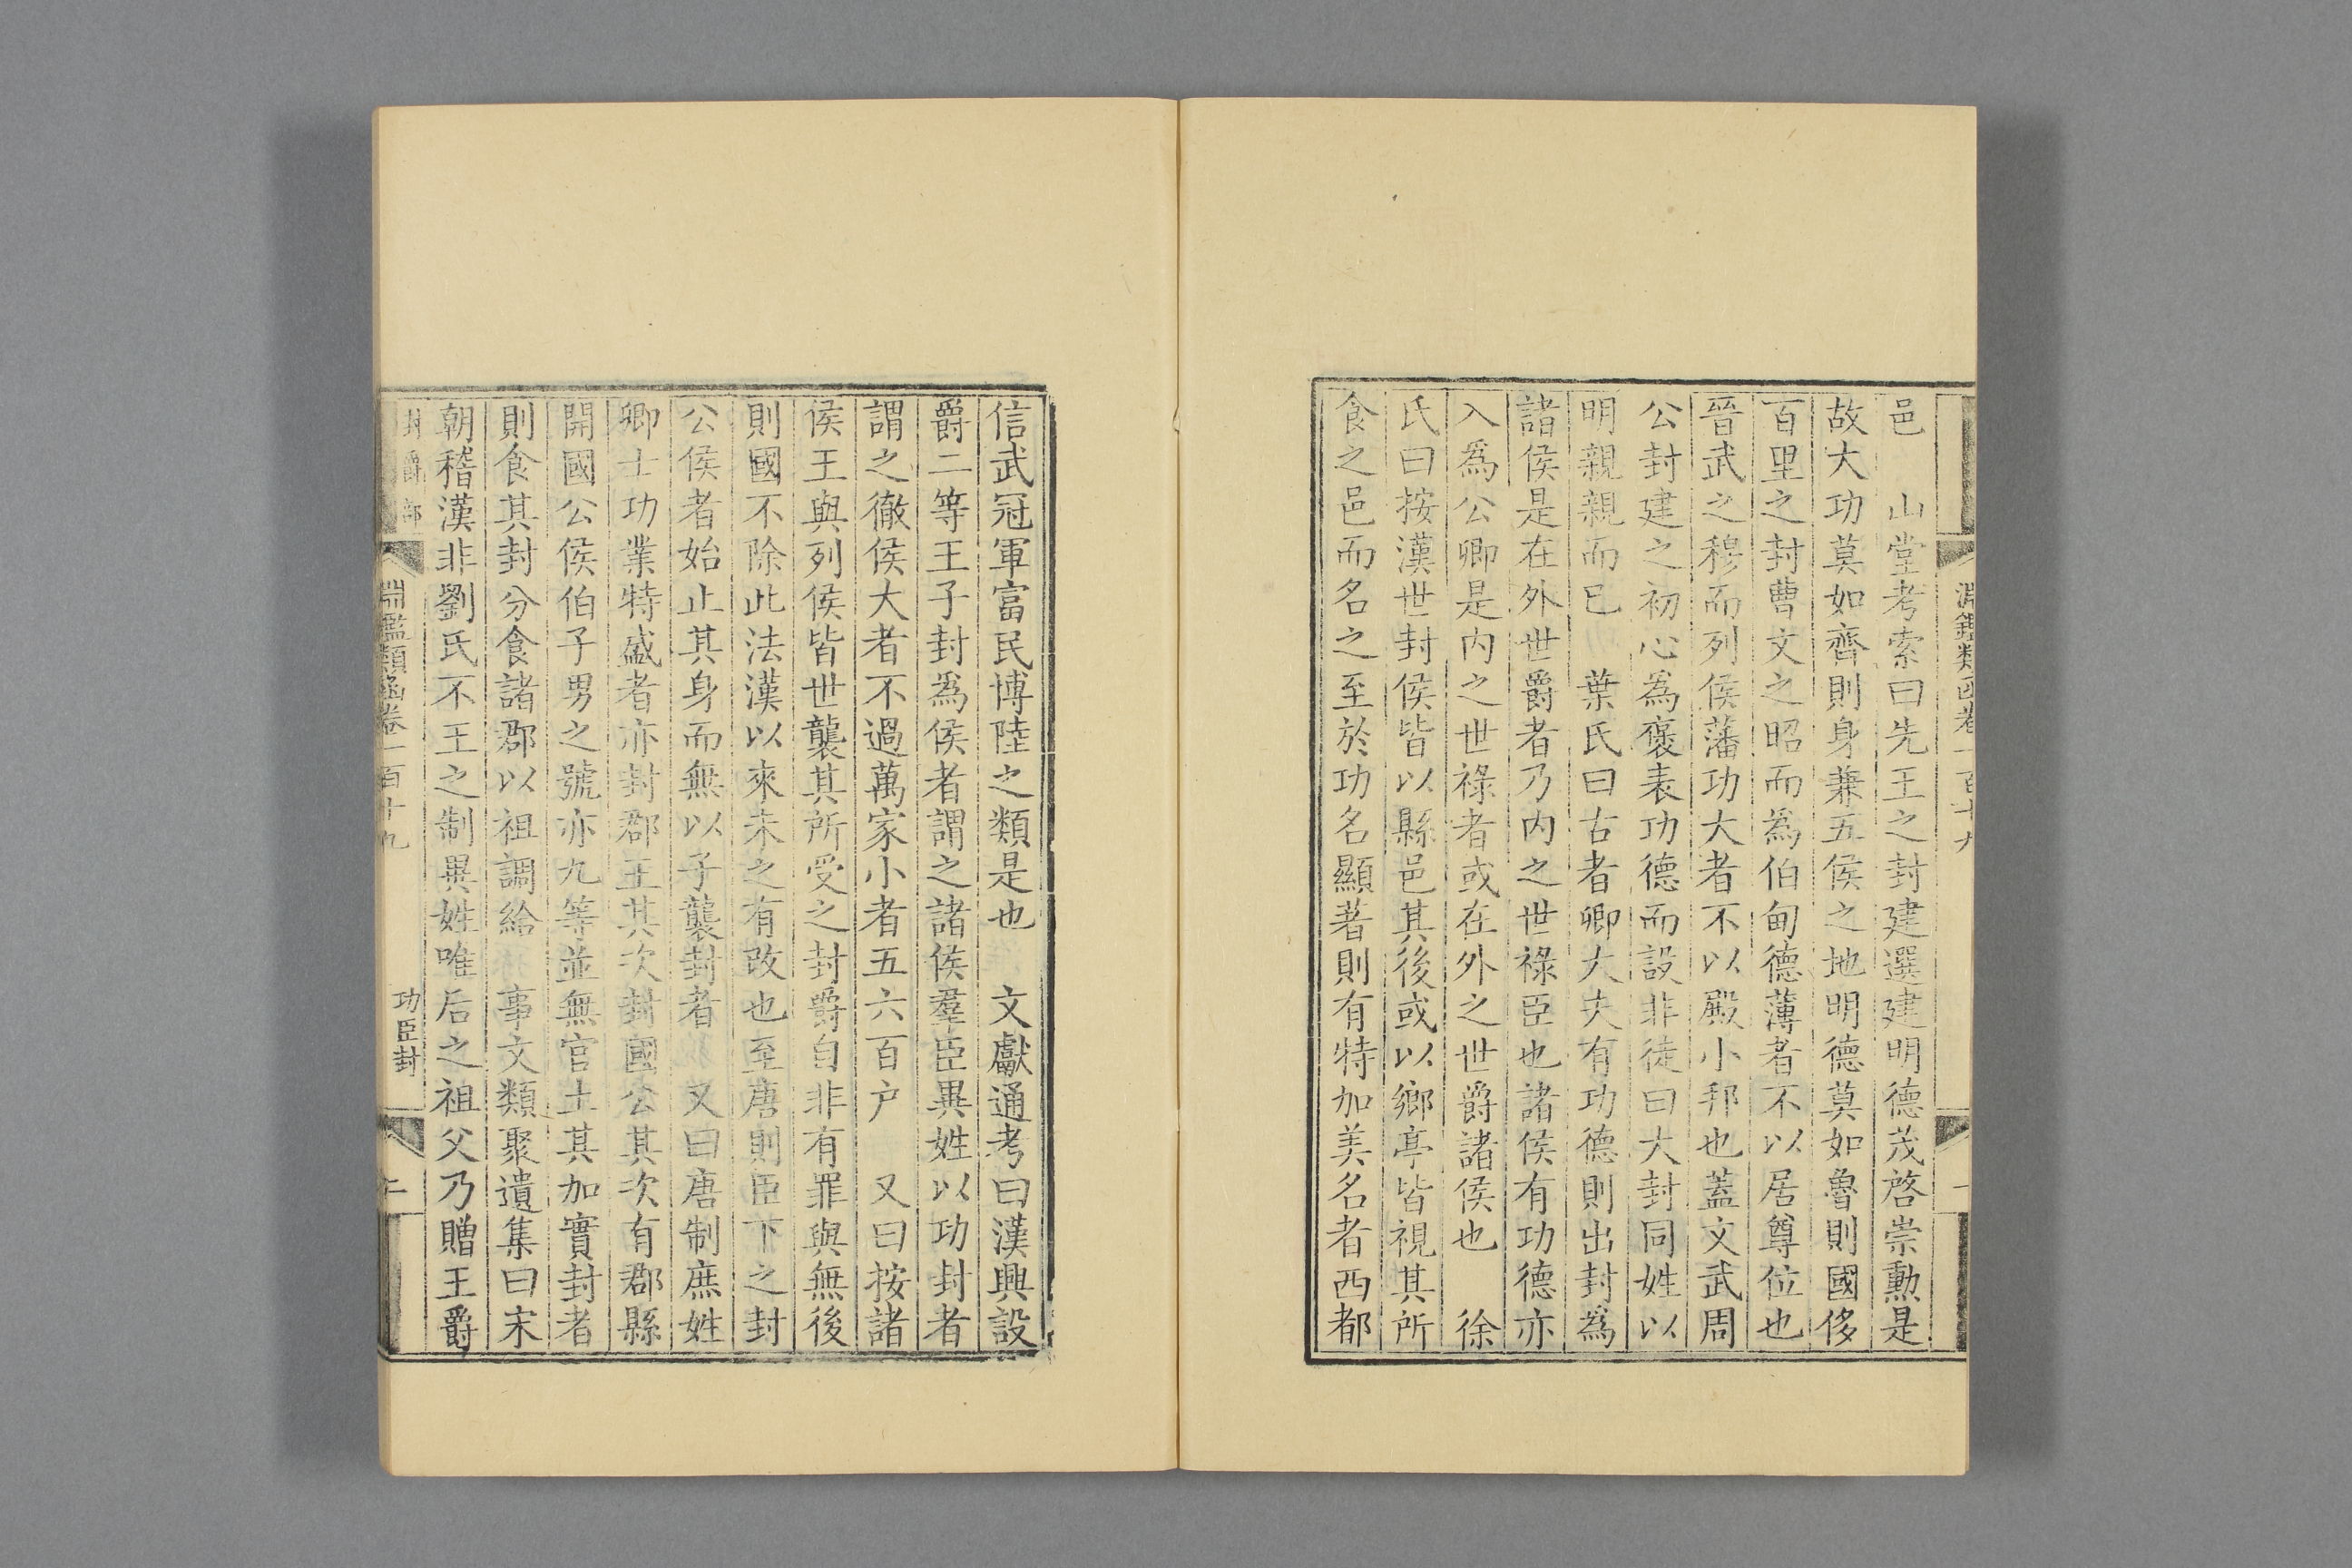 淵鑑類函卷一百十九
一
邑　山堂考索曰先王之封建選建明德茂啓崇勳是
故大功莫如齊則身兼五侯之地明德莫如魯則國侈
百里之封曹文之昭而為伯甸德薄者不以居尊位也
晉武之穆而列侯藩功大者不以殿小邦也蓋文武周
公封建之初心為褒表功德而設非徒曰大封同姓以
明親親而已　葉氏曰古者卿大夫有功德則出封為
諸侯是在外世爵者乃內之世祿臣也諸侯有功德亦
入為公卿是內之世祿者或在外之世爵諸侯也　徐
氏曰按漢世封侯皆以縣邑其後或以鄉亭皆視其所
食之邑而名之至於功名顯著則有特加美名者西都
信武冠軍富民博陸之類是也　文獻通考曰漢興設
爵二等王子封為侯者謂之諸侯羣臣異姓以功封者
謂之徹侯大者不過萬家小者五六百户　又曰按諸
侯王與列侯皆世襲其所受之封爵自非有罪與無後
則國不除此法漢以來未之有改也至唐則臣下之封
公侯者始止其身而無以子襲封者　又曰唐制庶姓
卿士功業特盛者亦封郡王其次封國公其次有郡縣
開國公侯伯子男之號亦九等並無官土其加實封者
則食其封分食諸郡以祖調給　事文類聚遺集曰宋
朝稽漢非劉氏不王之制異姓唯后之祖父乃贈王爵
封爵部
淵鑑類函卷一百十九
功臣封
二